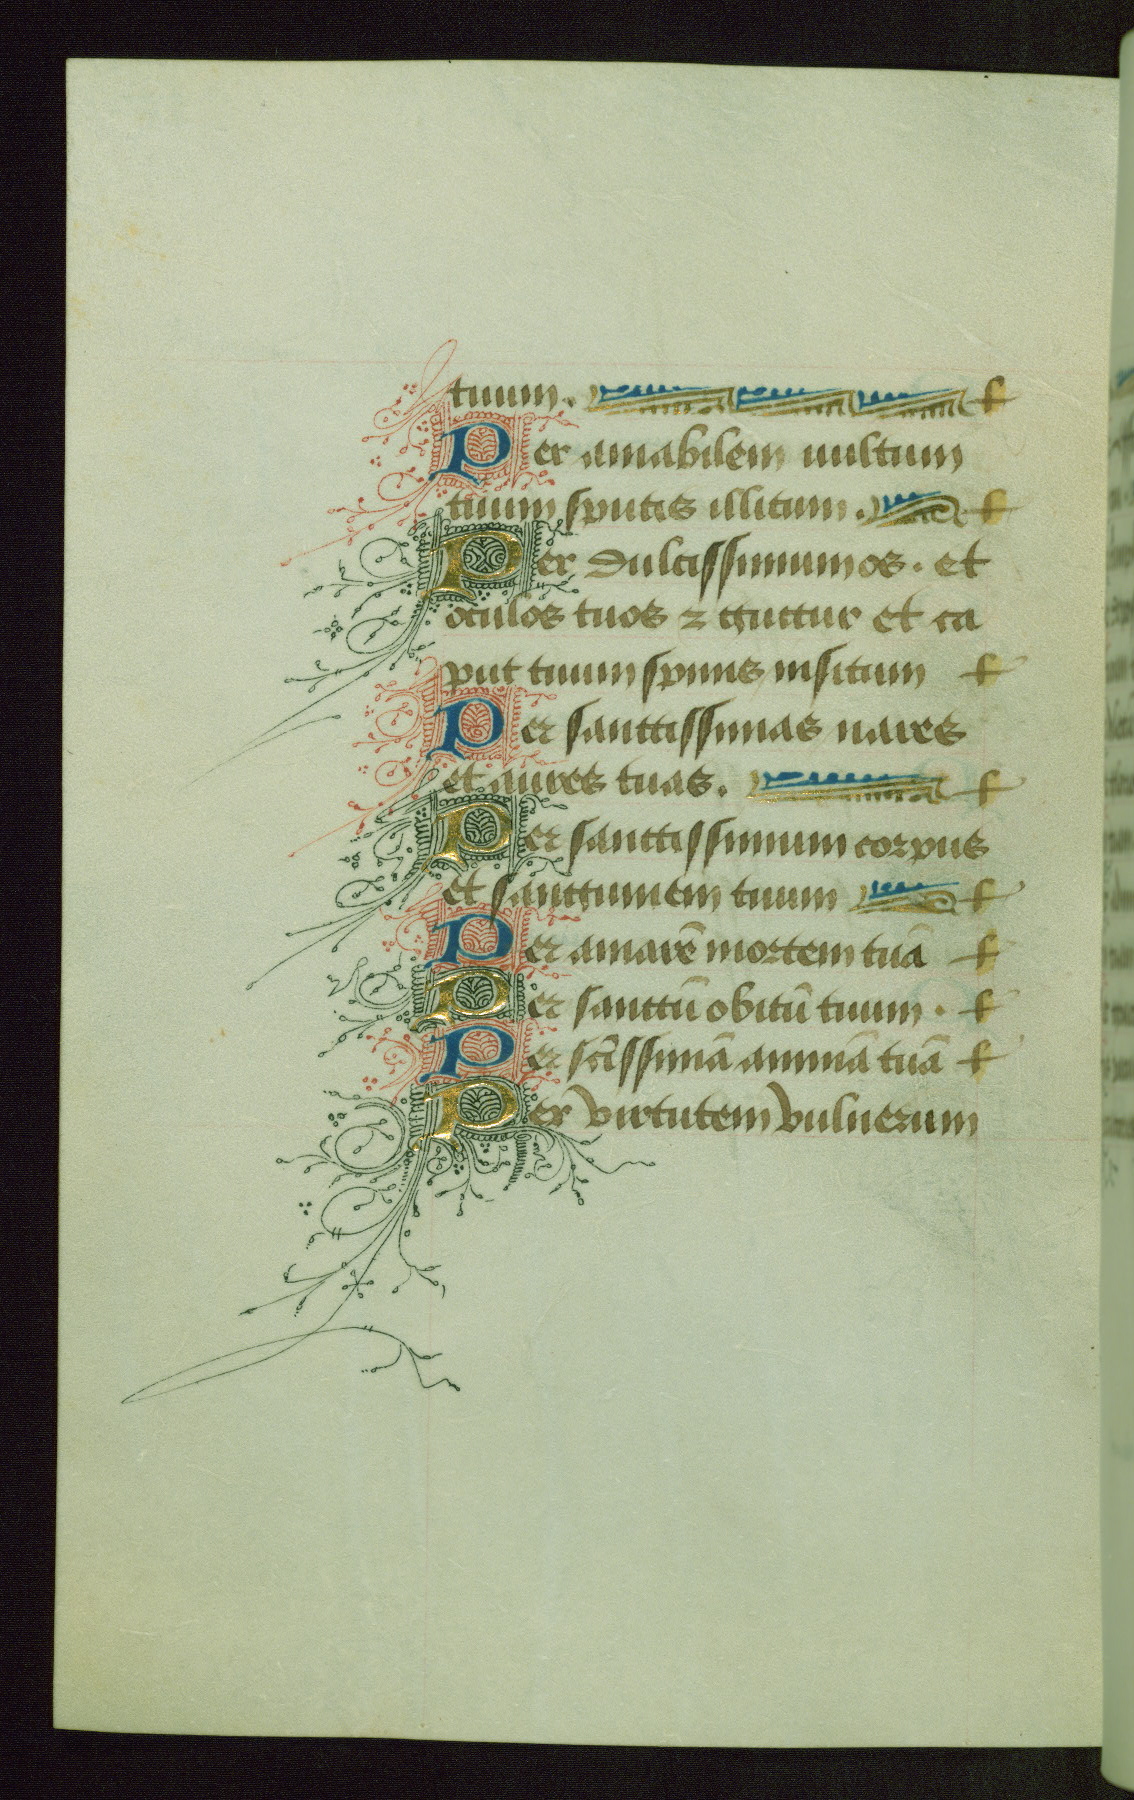 tuum. f
Per amabilem uultum
tuum sputis illitum. f
Per dulcissimum os. et
oculos tuos ⁊ guttur et ca
put tuum spinis insitum f
Per sanctissimas nares
et aures tuas. f
Per sanctissimum corpus
et sanguinem tuum f
Per amarē mortem tuā f
Per sanctū obitū tuum. f
Per sc̄issimā animā tuā f
Per virtutem vulnerum